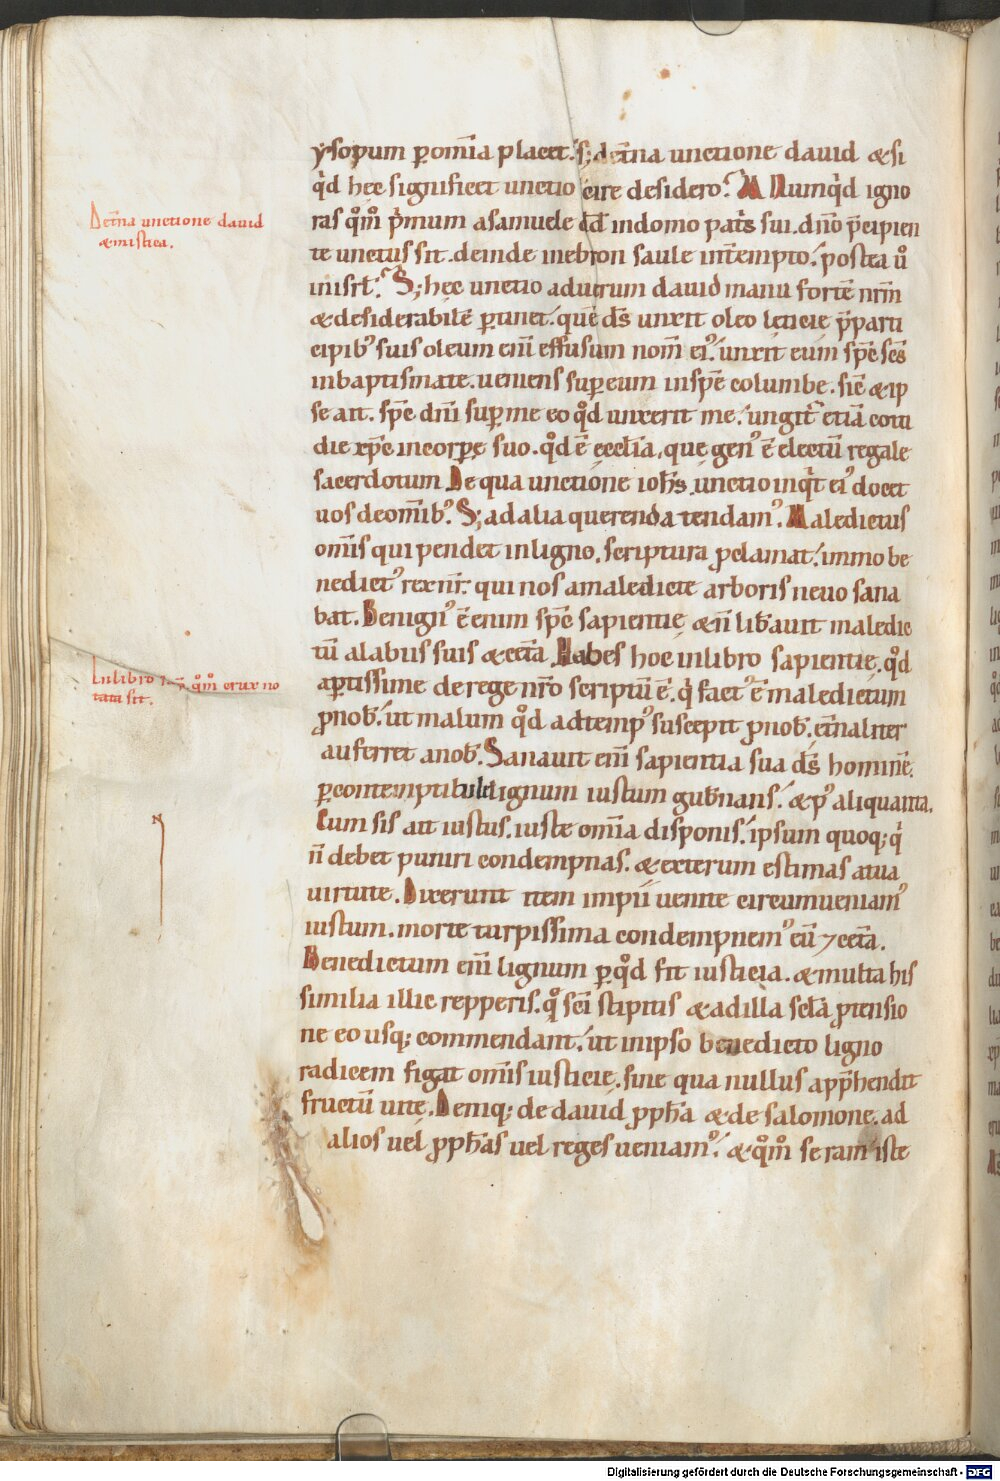 ysopum ꝑ om̅ia placet. S; de t̅na unctione dauid & si
qͥd hec significet unctio scire desidero. M Numqͥd igno
ras qm̅ pͥmum a samuele dd̅ in domo patͥs sui. dn̅o p̅cipien
te unctus sit. deinde in ebron saule int̅empto. postea u̅
in isrl̅. S; hec unctio ad uerum dauid manu forte̅ nr̅m
& desiderabile̅ ꝑtinet. que̅ ds̅ unxit oleo leticie p̅ parti
cipibꝰ suis oleum eni̅ effusum nom̅ eiꝰ. unxit eum sp̅c sc̅s
in baptismate. ueniens super eum in sp̅e columbe. sic̅ & ip
se ait. sp̅c dn̅i super me eo qd̅ unxerit me. ungitͬ etia̅ coti
die xp̅c in corꝑe suo. qd̅ e̅ eccl̅ia, que genꝰ e̅ electu̅ regale
sacerdotum. De qua unctione ioh̅s. unctio inqͥt eiꝰ docet
uos de om̅ibꝰ. S; ad alia querenda tendamꝰ. Maledictus
om̅is qui pendet in ligno. scriptura ꝓclamat. immo be
nedictꝰ rex nr̅. qui nos a maledicte arboris neuo sana
bat. Benignꝰ e̅ enim sp̅c sapientie, & n̅ lib̅auit maledic
tu̅ a labiis suis & cet̅a. Habes hoc in libro sapientie. qd̅
aꝑtissime de rege nr̅o scriptu̅ e̅. qͥ factꝰ e̅ maledictum
ꝓ nob̅. ut malum qd̅ ad tempꝰ suscepit ꝓ nob̅. et̅naliter
auferret a nob̅. Sanauit eni̅ sapientia sua ds̅ homine̅.
ꝑ contemptibile lignum iustum gub̅nans. & pꝰ aliquanta.
Cum sis ait iustus. iuste om̅ia disponis. ipsum quoq; qͥ
n̅ debet puniri condempnas. & exterum estimas a tua
uirtute. Dixerunt item impii uenite circumueniamꝰ
iustum. morte turpissima condempnemꝰ eu̅ ⁊ cet̅a.
Benedictum eni̅ lignum ꝑ qd̅ fit iusticia. & multa his
similia illic repperis. qͦ sc̅i stipitis & ad illa scl̅a ꝓtensio
ne eo usq; commendant. ut in ipso benedicto ligno
radicem figat om̅is iusticie. sine qua nullus app̅hendit
fructu̅ uite. Deniq; de dauid ꝓph̅a & de salomone. ad
alios uel ꝓph̅as uel reges ueniamꝰ. & qm̅ seram iste
De t̅na unctione dauid
& mistica.
In libro sap̅. qm̅ crux no
tata sit.